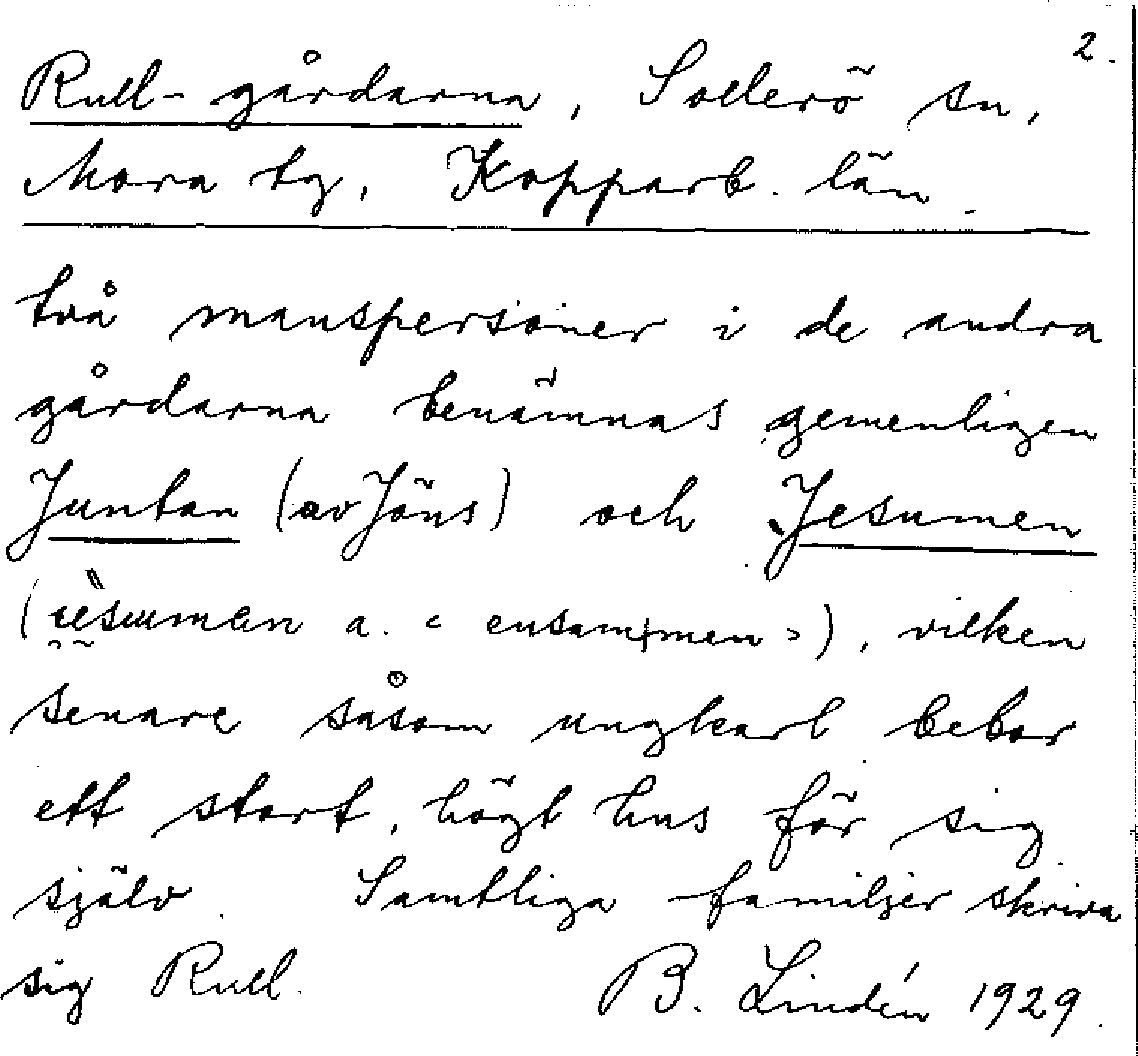 2.
Rull-gårdarna, Sollerö sn,
Mora tg, Kopparb. län.
två manspersoner i de andra
gårdarna benämnas gemenligen
Juntan (av Jöns) och Jesumen
(a. < ensammen >), vilken
senare såsom ungkarl bebor
ett stort, högt hus för sig
själv. Samtliga familjer skriva
sig Rull. B. Lindén 1929.